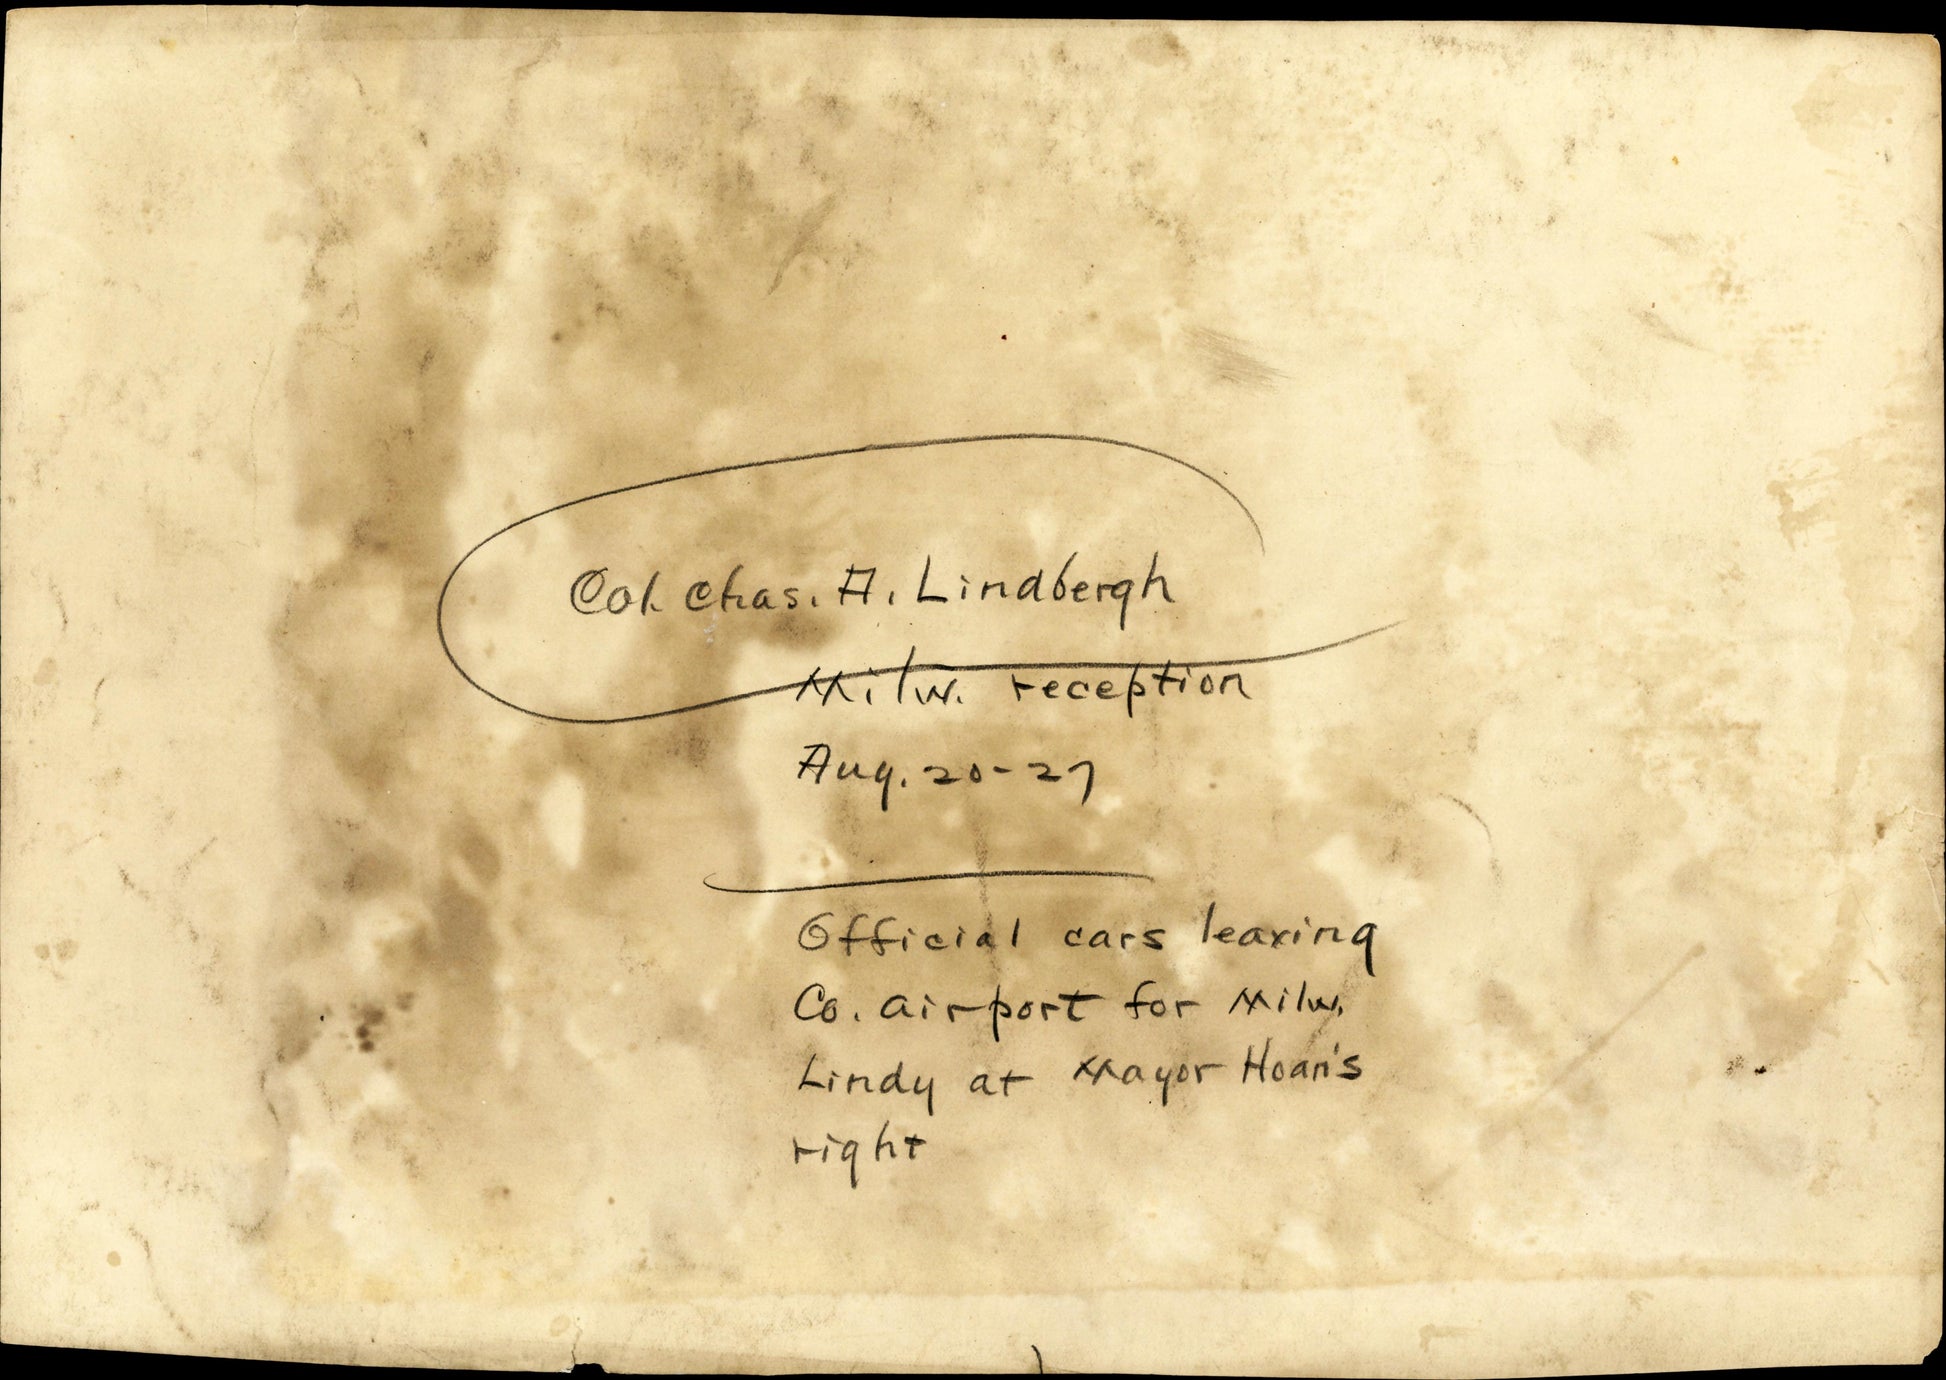 Col. Chas. A. Lindbergh
Milw. reception
Aug. 20-27
Official cars leaving
Co. airport for Milw.
Lindy at Mayor Hoan's
right